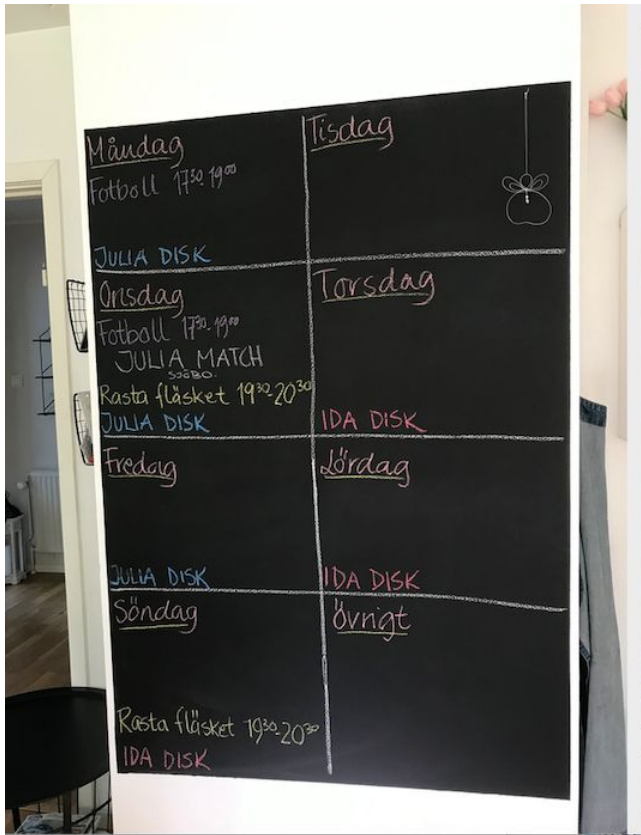 Måndag
Fotboll 17³⁰-19⁰⁰
JULIA DISK
Tisdag
Onsdag
Fotboll 17³⁰-19⁰⁰
JULIA MATCH
SJÖBO.
Rasta fläsket 19³⁰-20³⁰
JULIA DISK
Torsdag
IDA DISK
Fredag
JULIA DISK
Lördag
IDA DISK
Söndag
Rasta fläsket 19³⁰-20³⁰
IDA DISK
Övrigt